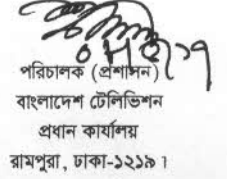 পরিচালক (প্রশাসন)
বাংলাদেশ টেলিভিশন
প্রধান কার্যালয়
রামপুরা, ঢাকা-১২১৯।